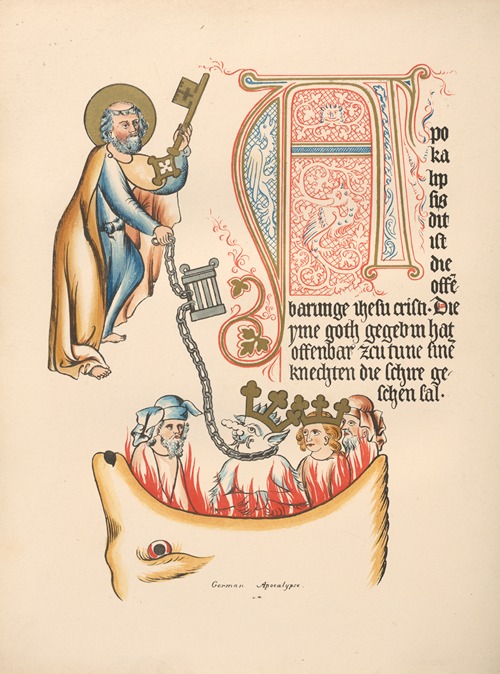 A
po
ka
lip
sis
dit
ist
die
offē
barunge ihesu cristi. Die
yme goth gegebin hat
offenbar zcu tune sinē
knechten die schire ge-
schen sal.
German Apocalypse.